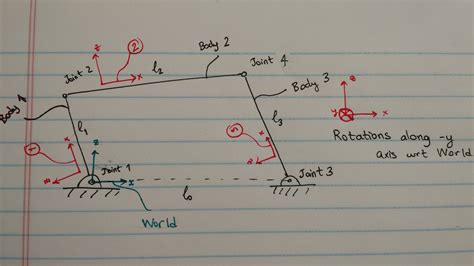 Body 2
Joint 4
z
②
Joint 2
x
l₂
Body 3
z
Body 1
l₁
①
l₃
y
x
③
Rotations along -y
axis wrt World
x
x
z
Joint 1
x
l₀
Joint 3
World